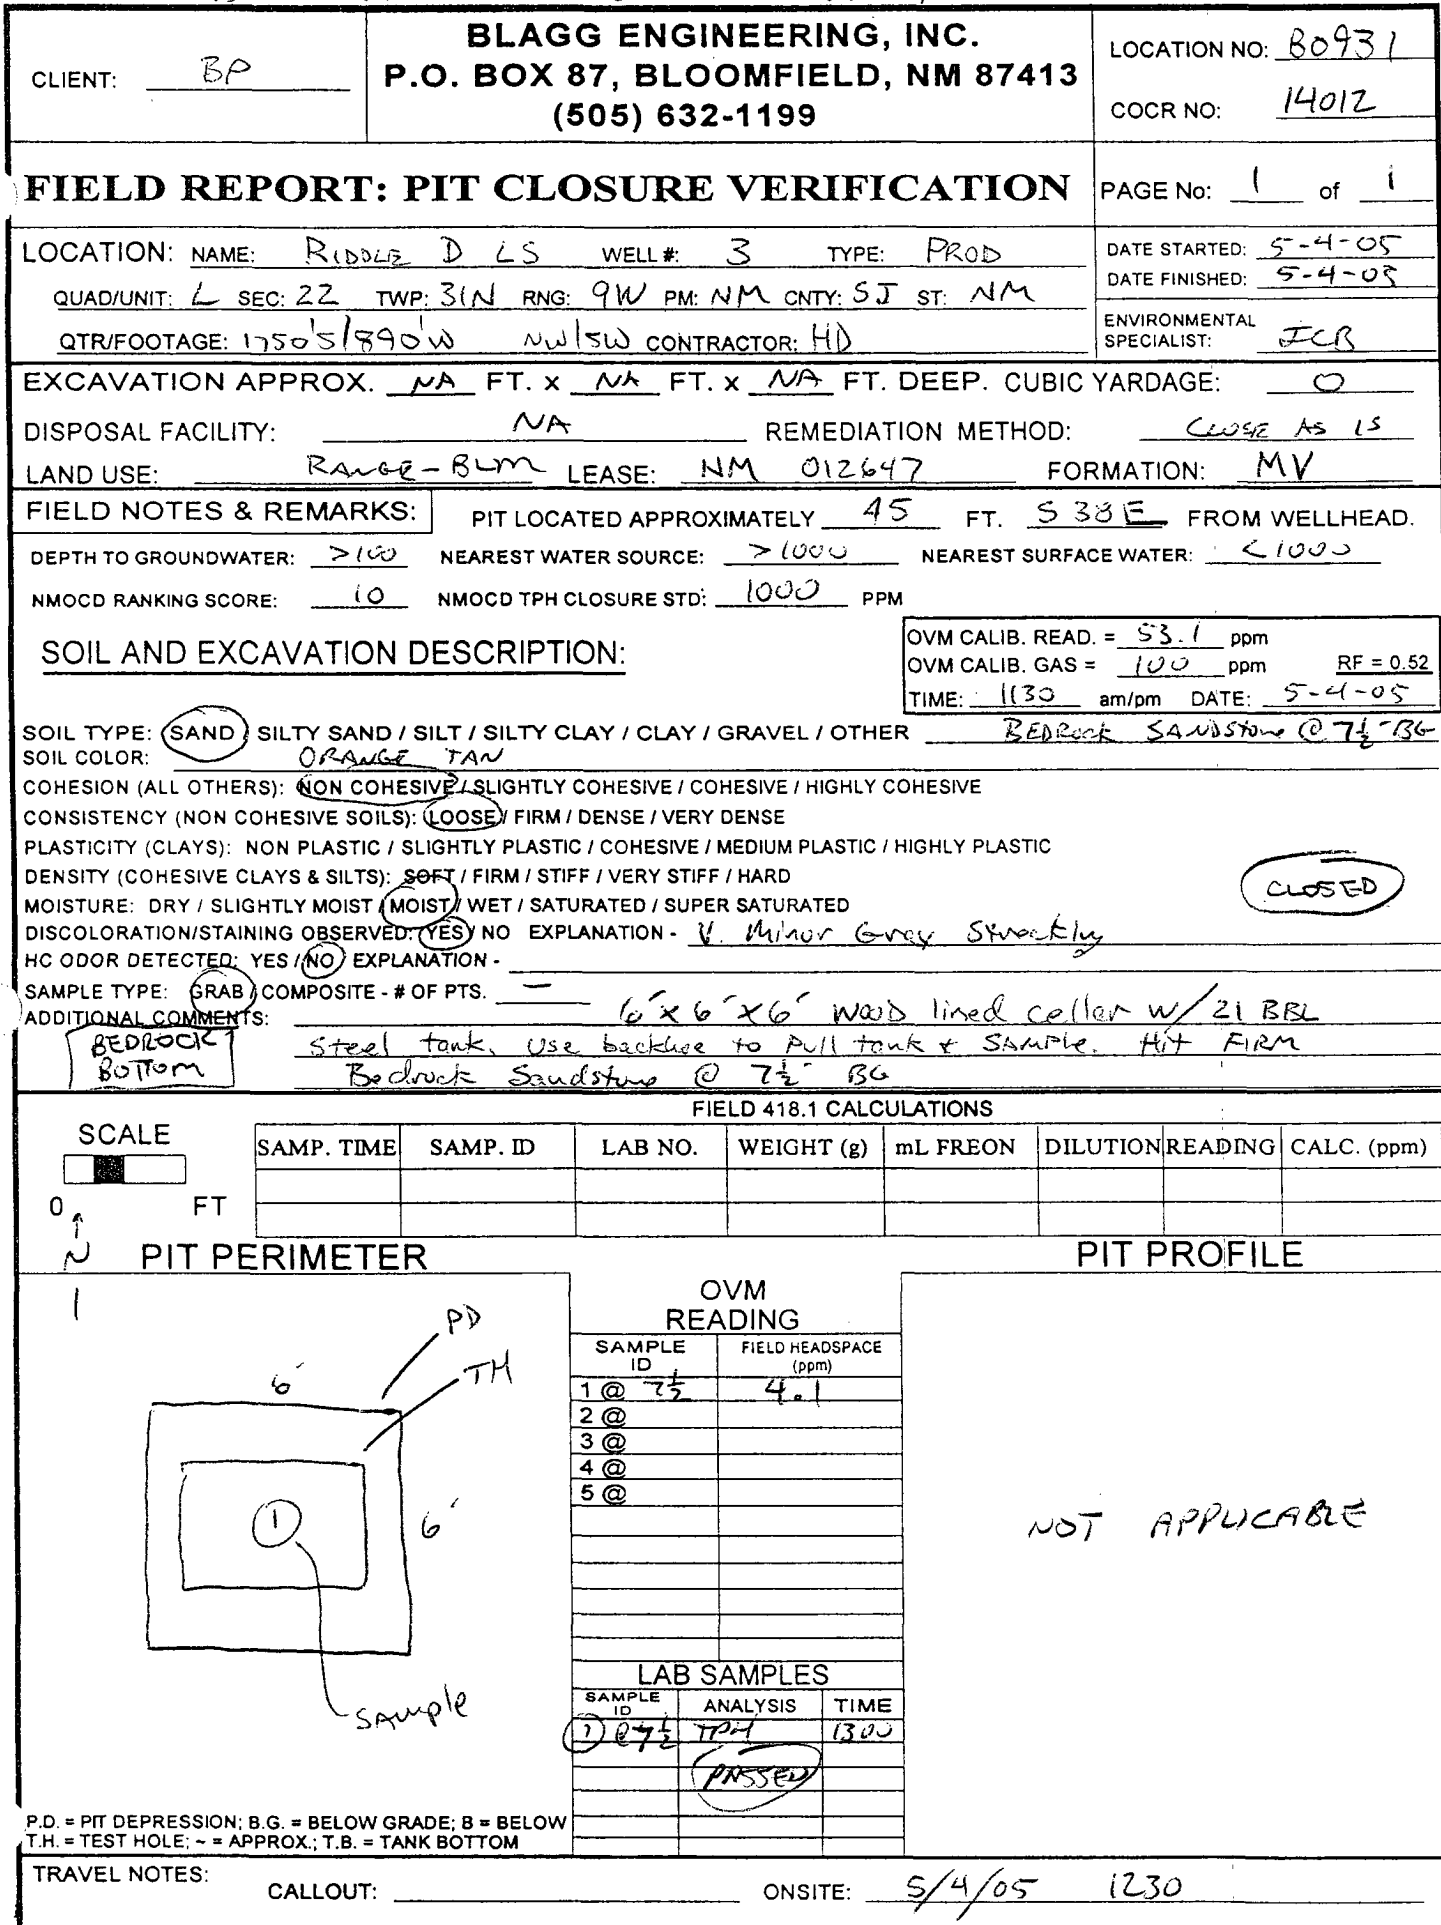 CLIENT: BP
BLAGG ENGINEERING, INC.
P.O. BOX 87, BLOOMFIELD, NM 87413
(505) 632-1199
LOCATION NO: B0931
COCR NO: 14012
FIELD REPORT: PIT CLOSURE VERIFICATION
PAGE No: 1 of 1
LOCATION: NAME: RIDDLE D LS WELL #: 3 TYPE: PROD
QUAD/UNIT: L SEC: 22 TWP: 31N RNG: 9W PM: NM CNTY: SJ ST: NM
QTR/FOOTAGE: 1750'S/890'W NW/SW CONTRACTOR: HD
DATE STARTED: 5-4-05
DATE FINISHED: 5-4-05
ENVIRONMENTAL
SPECIALIST: JCB
EXCAVATION APPROX. NA FT. x NA FT. x NA FT. DEEP. CUBIC YARDAGE: 0
DISPOSAL FACILITY: NA REMEDIATION METHOD: CLOSE AS IS
LAND USE: RANGE-BLM LEASE: NM 012647 FORMATION: MV
FIELD NOTES & REMARKS: PIT LOCATED APPROXIMATELY 45 FT. S38E FROM WELLHEAD.
DEPTH TO GROUNDWATER: >100 NEAREST WATER SOURCE: >1000 NEAREST SURFACE WATER: <1000
NMOCD RANKING SCORE: 10 NMOCD TPH CLOSURE STD: 1000 PPM
SOIL AND EXCAVATION DESCRIPTION:
OVM CALIB. READ. = 53.1 ppm
OVM CALIB. GAS = 100 ppm RF = 0.52
TIME: 1130 am/pm DATE: 5-4-05
SOIL TYPE: SAND / SILTY SAND / SILT / SILTY CLAY / CLAY / GRAVEL / OTHER BEDROCK SANDSTONE @ 7½' BG
SOIL COLOR: ORANGE TAN
COHESION (ALL OTHERS): NON COHESIVE / SLIGHTLY COHESIVE / COHESIVE / HIGHLY COHESIVE
CONSISTENCY (NON COHESIVE SOILS): LOOSE / FIRM / DENSE / VERY DENSE
PLASTICITY (CLAYS): NON PLASTIC / SLIGHTLY PLASTIC / COHESIVE / MEDIUM PLASTIC / HIGHLY PLASTIC
DENSITY (COHESIVE CLAYS & SILTS): SOFT / FIRM / STIFF / VERY STIFF / HARD
MOISTURE: DRY / SLIGHTLY MOIST / MOIST / WET / SATURATED / SUPER SATURATED
CLOSED
DISCOLORATION/STAINING OBSERVED: YES / NO EXPLANATION - V. Minor Gray Streaking
HC ODOR DETECTED: YES / NO EXPLANATION -
SAMPLE TYPE: GRAB / COMPOSITE - # OF PTS. —
ADDITIONAL COMMENTS: 6' x 6' x 6' WOOD lined cellar w/ 21 BBL
BEDROCK BOTTOM
Steel tank. Use backhoe to Pull tank & SAMPLE. Hit FIRM
Bedrock Sandstone @ 7½' BG
FIELD 418.1 CALCULATIONS
SCALE
0 FT
SAMP. TIME SAMP. ID LAB NO. WEIGHT (g) mL FREON DILUTION READING CALC. (ppm)
N
PIT PERIMETER
PIT PROFILE
PD
TH
6'
6'
1
SAMPLE
OVM
READING
SAMPLE ID FIELD HEADSPACE (ppm)
1 @ 7½ 4.1
2 @
3 @
4 @
5 @
NOT APPLICABLE
LAB SAMPLES
SAMPLE ID ANALYSIS TIME
1 @ 7½ TPH 1300
PASSED
P.D. = PIT DEPRESSION; B.G. = BELOW GRADE; B = BELOW
T.H. = TEST HOLE; ~ = APPROX.; T.B. = TANK BOTTOM
TRAVEL NOTES: CALLOUT: ONSITE: 5/4/05 1230